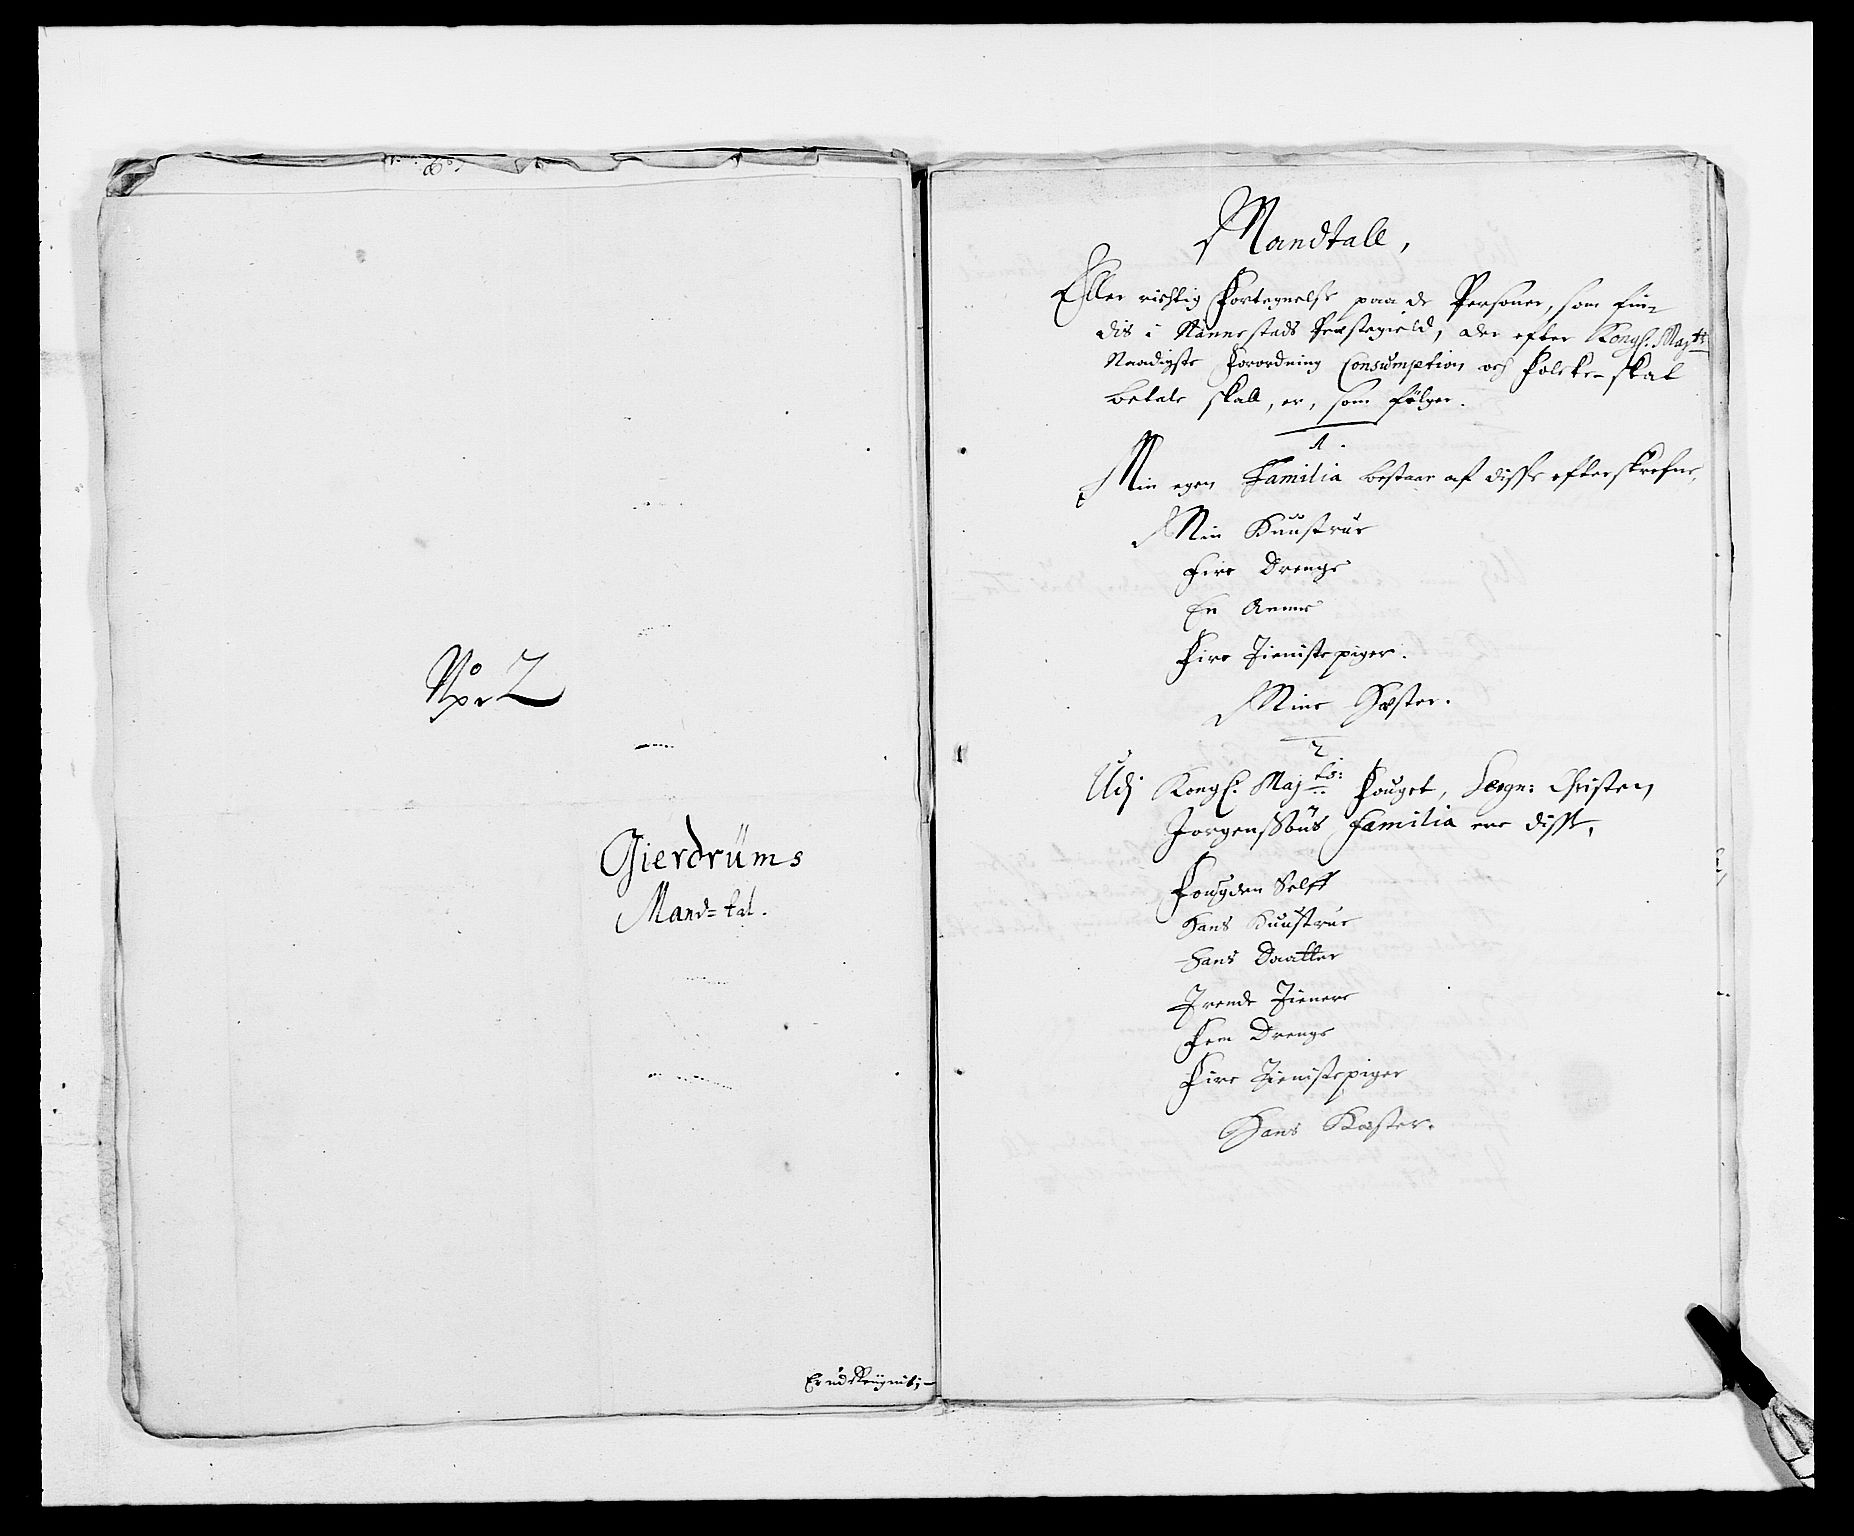 No 2
Gierdrüms
Mand=tal.
Mandtall,
Eller richtig Fortegnelse paa de Personer, som fin-
dis i Nannestads Præstegield, der efter Kongl. Mayts
Naadigste Forordning Consumption och Folcke-skat
betale skall, er, som følger.
1.
Min egen Familia bestaar af disse efterskrefne,
Min Huustrue
Fire Drenge
En Amme
Fire Tienistepiger.
Mine Hæster.
2
Udj Kongl. Majts: Fouget, Seign: Christen
Jorgenssøns Familia ere disse,
Fougden Self
Hans Huustrue
Hans Daatter
Trende Tienere
Fem Drenge
Fire Tienistepiger
Hans Hæster.